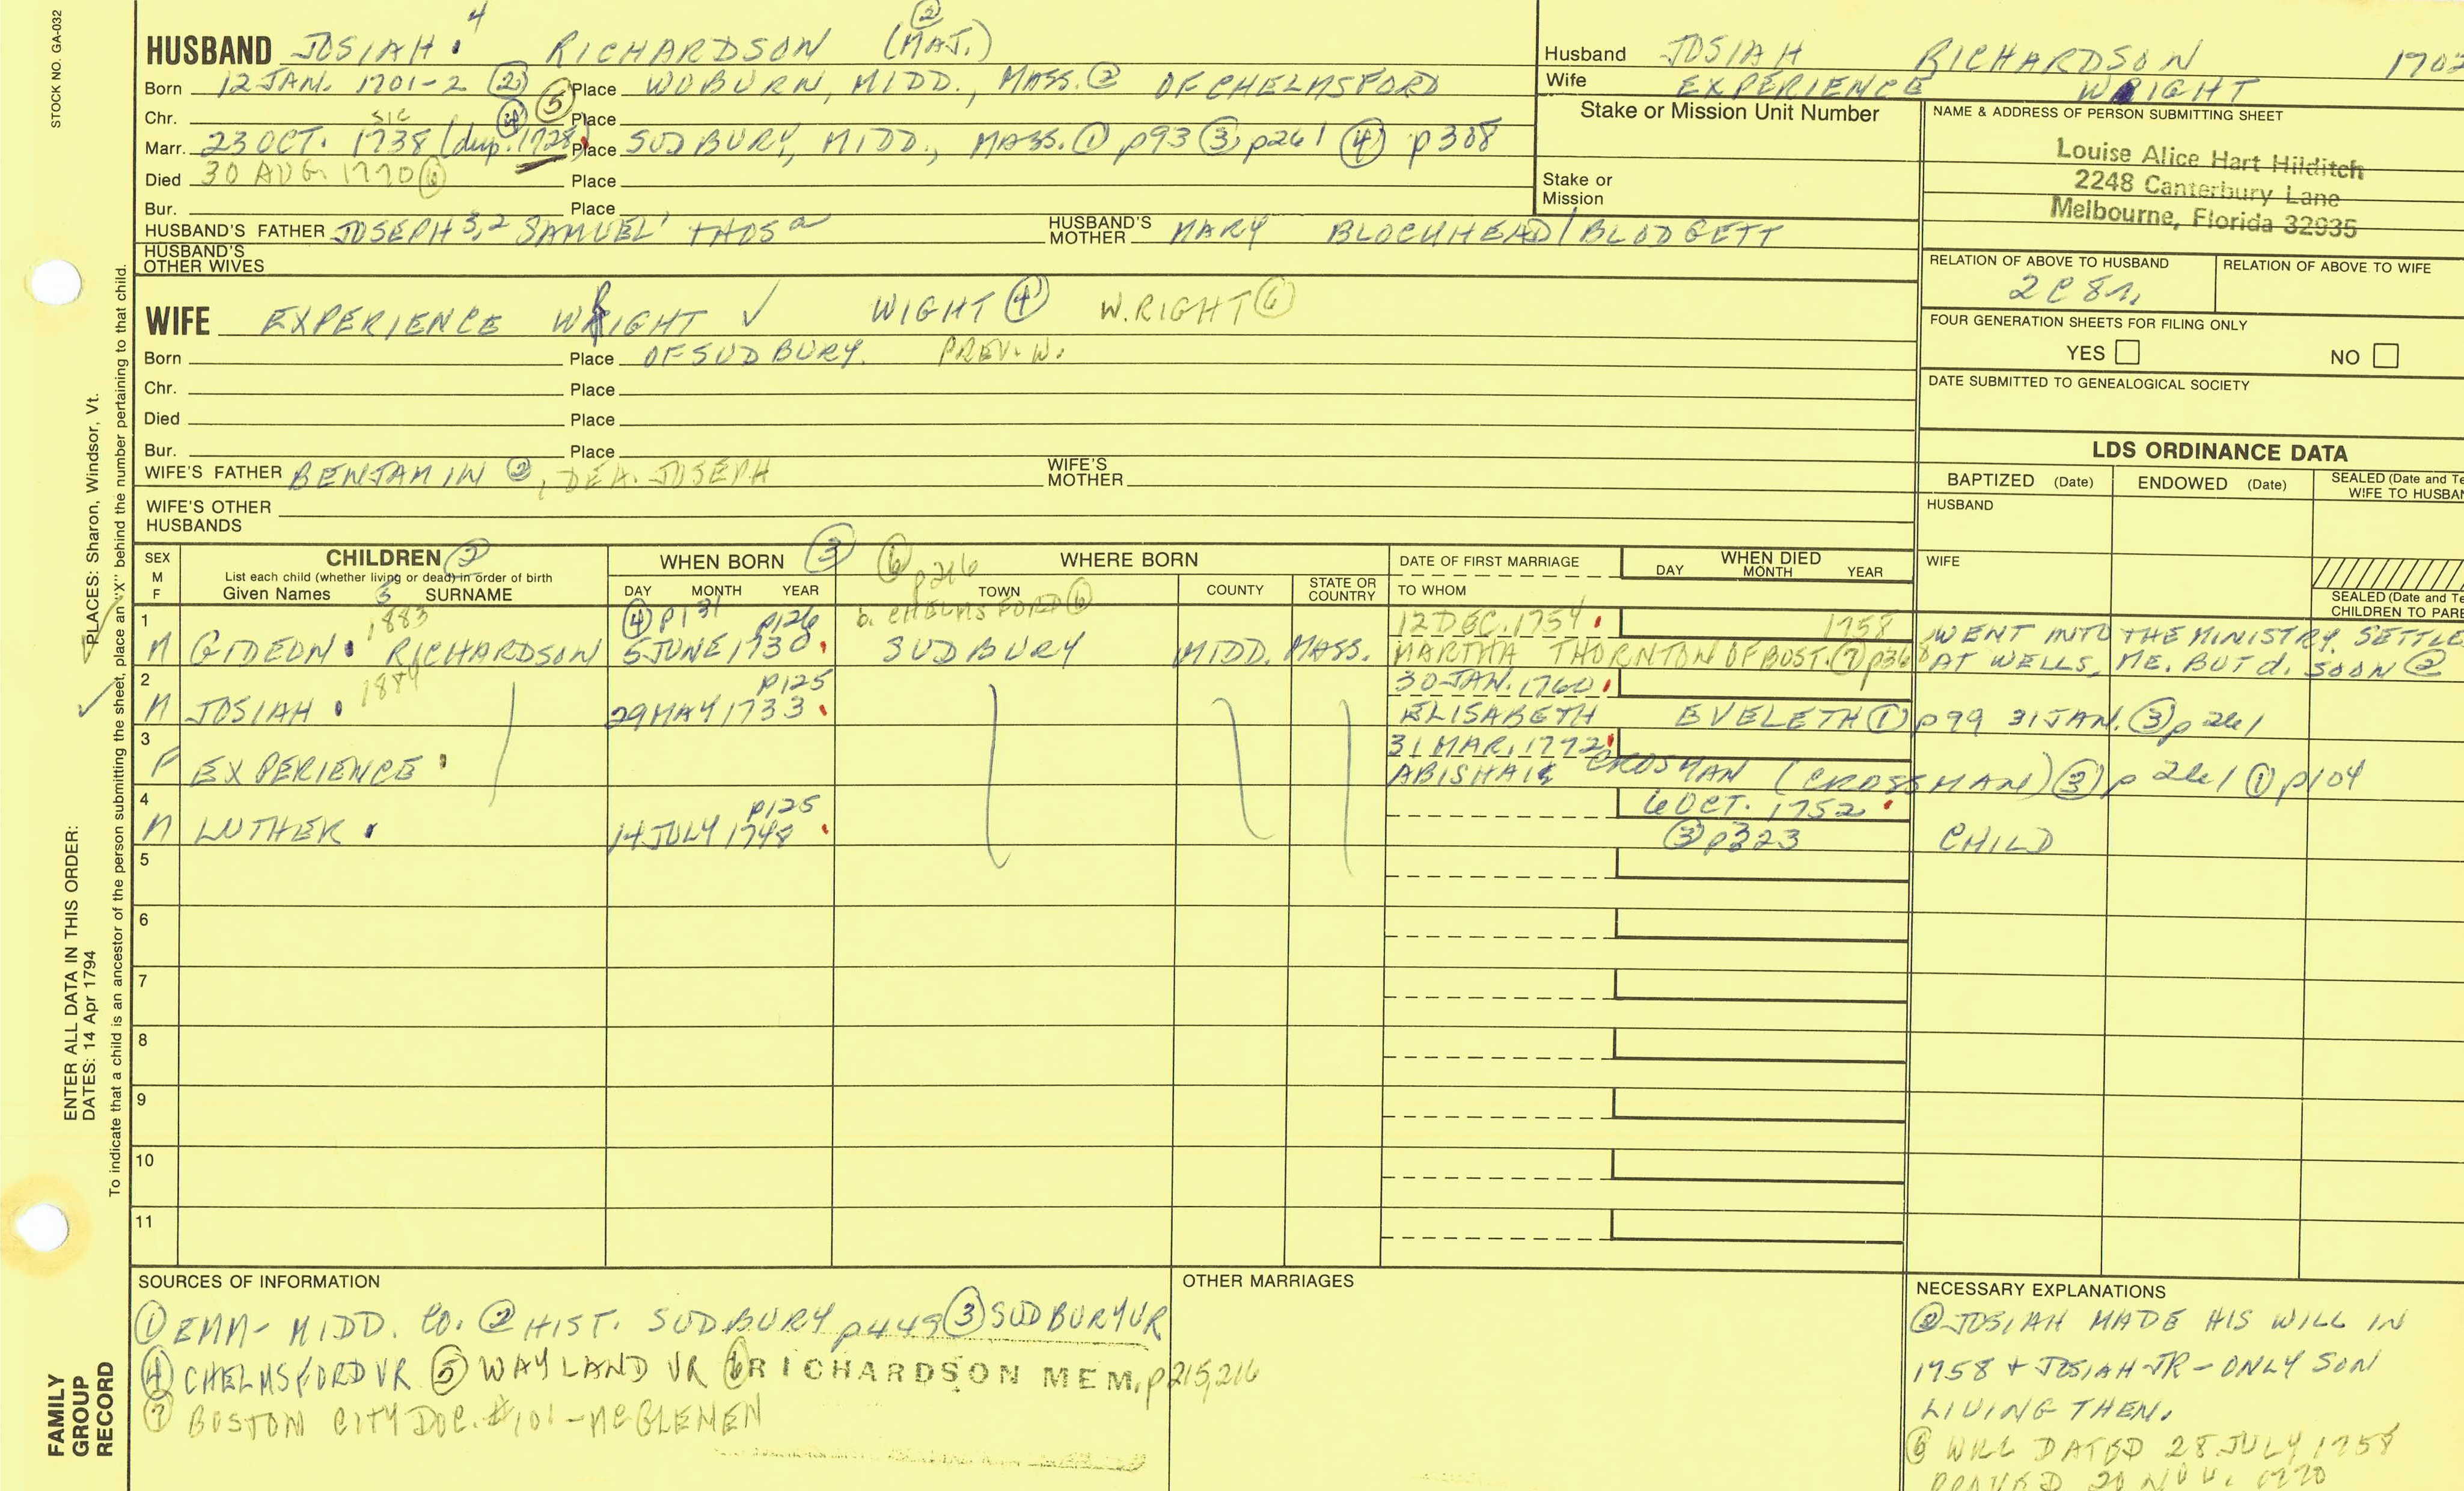 STOCK NO. GA-032
4
HUSBAND JOSIAH RICHARDSON (MAJ.) ②
Born 12 JAN. 1701-2 ② Place WOBURN, MIDD., MASS. ② OF CHELMSFORD
Chr. Place
sic ④ ⑤
Marr. 23 OCT. 1738 (dup. 1728) Place SUDBURY, MIDD., MASS. ① p93 ③ p261 ④ p308
Died 30 AUG. 1770 ⑥ Place
Bur. Place
HUSBAND'S FATHER JOSEPH 3, 2 SAMUEL 1 THOS a HUSBAND'S MOTHER MARY BLOCKHEAD/BLODGETT
HUSBAND'S OTHER WIVES
WIFE EXPERIENCE WRIGHT ✓ WIGHT ④ W.RIGHT ⑥
Born Place OF SUDBURY. PREV. W.
Chr. Place
Died Place
Bur. Place
WIFE'S FATHER BENJAMIN ②, DEA. JOSEPH WIFE'S MOTHER
WIFE'S OTHER HUSBANDS
Husband JOSIAH RICHARDSON 1702
Wife EXPERIENCE WRIGHT
Stake or Mission Unit Number
Stake or Mission
NAME & ADDRESS OF PERSON SUBMITTING SHEET
Louise Alice Hart Hilditch
2248 Canterbury Lane
Melbourne, Florida 32935
RELATION OF ABOVE TO HUSBAND RELATION OF ABOVE TO WIFE
2C8R.
FOUR GENERATION SHEETS FOR FILING ONLY
YES NO
DATE SUBMITTED TO GENEALOGICAL SOCIETY
LDS ORDINANCE DATA
BAPTIZED (Date) ENDOWED (Date) SEALED (Date and Te
WIFE TO HUSBAN
HUSBAND
WIFE
SEALED (Date and Te
CHILDREN TO PARE
SEX M F
CHILDREN ②
List each child (whether living or dead) in order of birth
Given Names 5 SURNAME
WHEN BORN ③
DAY MONTH YEAR
⑥ p216 WHERE BORN
TOWN COUNTY STATE OR COUNTRY
DATE OF FIRST MARRIAGE
TO WHOM
WHEN DIED
DAY MONTH YEAR
1 1883 ④ p131 p126 b. CHELMSFORD ⑥ 12 DEC. 1754 1758 WENT INTO THE MINISTRY. SETTLE
M GIDEON RICHARDSON 5 JUNE 1730 SUDBURY MIDD. MASS. MARTHA THORNTON OF BOST. ⑦ p368 AT WELLS, ME. BUT d. SOON ②
2 1884 p125 30 JAN. 1760
M JOSIAH 29 MAY 1733 ELISABETH EVELETH ① p99 31 JAN. ③ p261
3 31 MAR. 1772
F EXPERIENCE ABISHAI CROSMAN (CROSSMAN) ③ p261 ① p104
4 p125 6 OCT. 1752
M LUTHER 14 JULY 1748 ③ p323 CHILD
5
6
7
8
9
10
11
SOURCES OF INFORMATION
① EMM- MIDD. CO. ② HIST. SUDBURY p449 ③ SUDBURY VR
④ CHELMSFORD VR ⑤ WAYLAND VR ⑥ RICHARDSON MEM. p215, 216
⑦ BOSTON CITY DOC. #101 - MCGLENEN
OTHER MARRIAGES
NECESSARY EXPLANATIONS
② JOSIAH MADE HIS WILL IN
1758 + JOSIAH JR - ONLY SON
LIVING THEN.
⑥ WILL DATED 28 JULY 1758
PROVED 20 NOV. 1770
PLACES: Sharon, Windsor, Vt.
ENTER ALL DATA IN THIS ORDER:
DATES: 14 Apr 1794
To indicate that a child is an ancestor of the person submitting the sheet, place an "X" behind the number pertaining to that child.
FAMILY
GROUP
RECORD